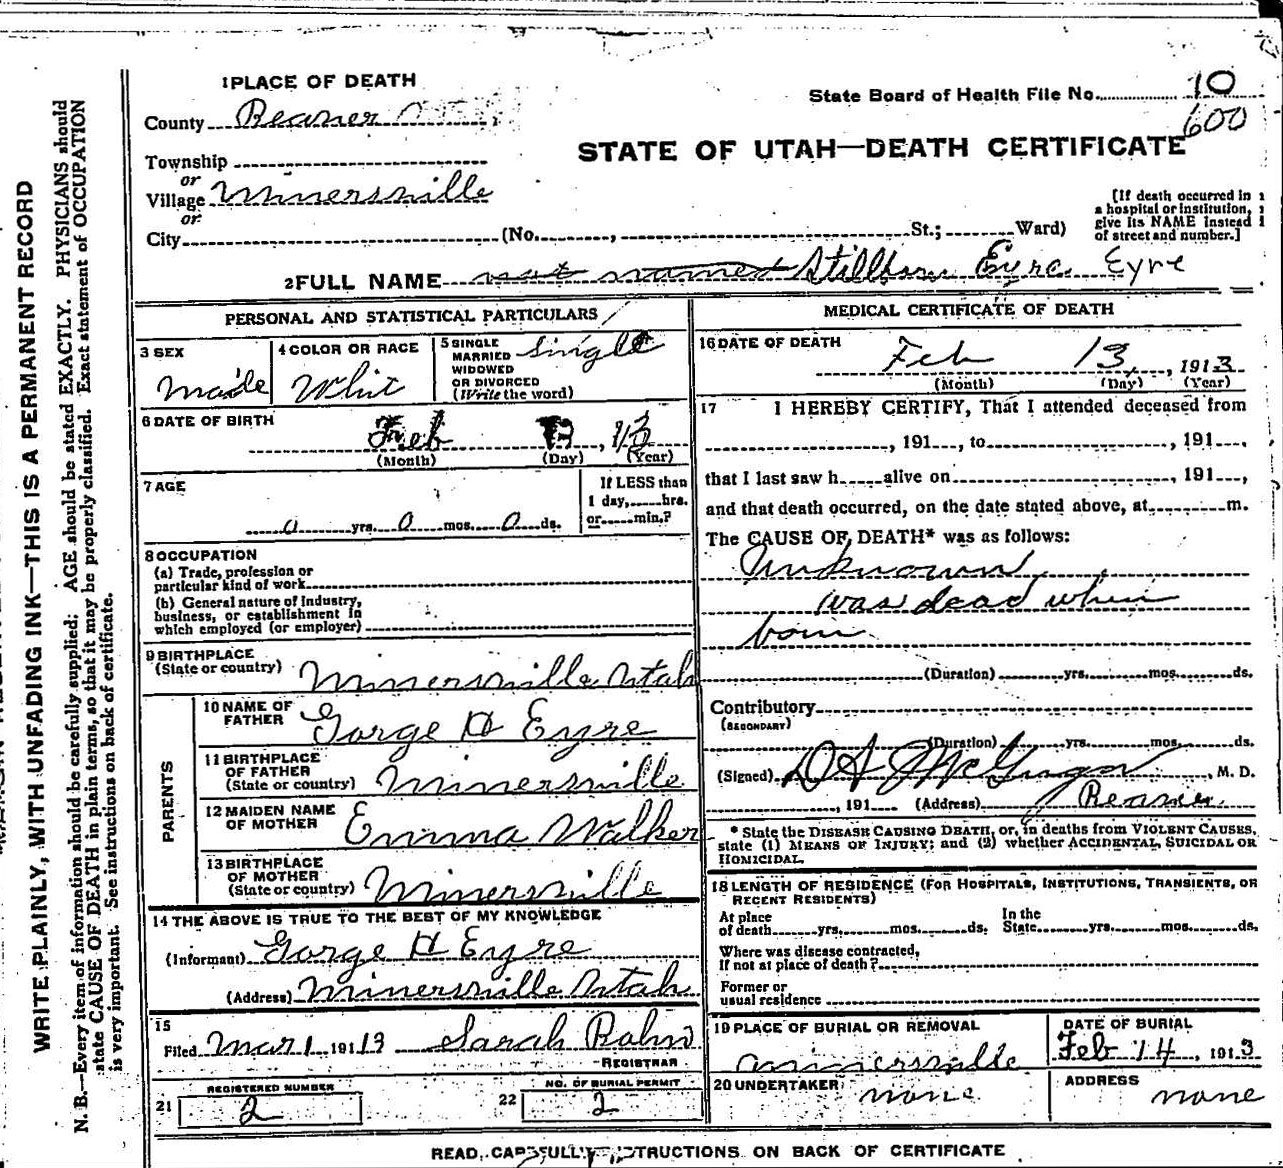 1 PLACE OF DEATH
State Board of Health File No. 10
600
County Beaver
STATE OF UTAH—DEATH CERTIFICATE
Township
or
Village Minersville
or
City (No. , St.; Ward)
[If death occurred in
a hospital or institution,
give its NAME instead
of street and number.]
2 FULL NAME not named Stillborn Eyre Eyre
PERSONAL AND STATISTICAL PARTICULARS
3 SEX
Male
4 COLOR OR RACE
Whit
5 SINGLE
MARRIED
WIDOWED
OR DIVORCED
(Write the word)
Single
6 DATE OF BIRTH
Feb 13, 13
(Month) (Day) (Year)
7 AGE
If LESS than
1 day, hrs.
or min.?
0 yrs. 0 mos. 0 ds.
8 OCCUPATION
(a) Trade, profession or
particular kind of work
(b) General nature of Industry,
business, or establishment in
which employed (or employer)
9 BIRTHPLACE
(State or country) Minersville Utah
PARENTS
10 NAME OF
FATHER Gorge H Eyre
11 BIRTHPLACE
OF FATHER
(State or country) Minersville
12 MAIDEN NAME
OF MOTHER Emma Walker
13 BIRTHPLACE
OF MOTHER
(State or country) Minersville
14 THE ABOVE IS TRUE TO THE BEST OF MY KNOWLEDGE
(Informant) Gorge H Eyre
(Address) Minersville Utah
15
Filed Mar 1 191 13 Sarah Rahn
REGISTRAR
REGISTERED NUMBER
21 2
NO. OF BURIAL PERMIT
22 2
MEDICAL CERTIFICATE OF DEATH
16 DATE OF DEATH
Feb 13, 1913
(Month) (Day) (Year)
17 I HEREBY CERTIFY, That I attended deceased from
, 191 , to , 191 ,
that I last saw h alive on , 191 ,
and that death occurred, on the date stated above, at m.
The CAUSE OF DEATH* was as follows:
Unknown
was dead when
born
(Duration) yrs. mos. ds.
Contributory
(SECONDARY)
(Duration) yrs. mos. ds.
(Signed) , M. D.
, 191 (Address) Beaver
* State the DISEASE CAUSING DEATH, or, in deaths from VIOLENT CAUSES,
state (1) MEANS OF INJURY; and (2) whether ACCIDENTAL, SUICIDAL OR
HOMICIDAL.
18 LENGTH OF RESIDENCE (FOR HOSPITALS, INSTITUTIONS, TRANSIENTS, OR
RECENT RESIDENTS)
At place
of death yrs. mos. ds.
In the
State yrs. mos. ds.
Where was disease contracted,
If not at place of death?
Former or
usual residence
19 PLACE OF BURIAL OR REMOVAL
Minersville
DATE OF BURIAL
Feb 14, 1913
20 UNDERTAKER
none
ADDRESS
none
READ CAREFULLY INSTRUCTIONS ON BACK OF CERTIFICATE
WRITE PLAINLY, WITH UNFADING INK—THIS IS A PERMANENT RECORD
N. B.—Every item of information should be carefully supplied: AGE should be stated EXACTLY. PHYSICIANS should
state CAUSE OF DEATH in plain terms, so that it may be properly classified. Exact statement of OCCUPATION
is very important. See instructions on back of certificate.